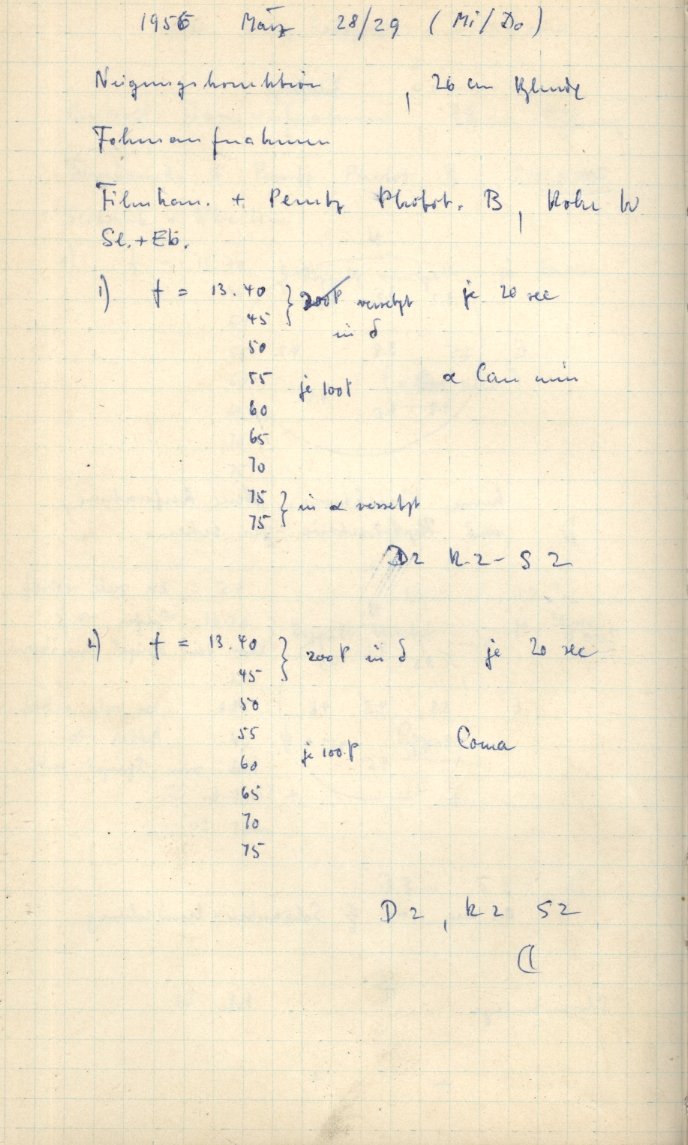 1956 März 28/29 (Mi/Do)
Neigungskorrektion, 26 cm Blende
Fokusaufnahmen
Filmkan. + Perutz Phibot. B, Rohr W
Sl. + Eb.
1) f = 13.40 } 200P versetzt je 20 sec
45 in δ
50
55 je 100P α Cau min
60
65
70
75 } in α versetzt
75
D2 K2 - S2
2) f = 13.40 } 200P in δ je 20 sec
45
50
55 je 100P Coma
60
65
70
75
D2, K2 S2